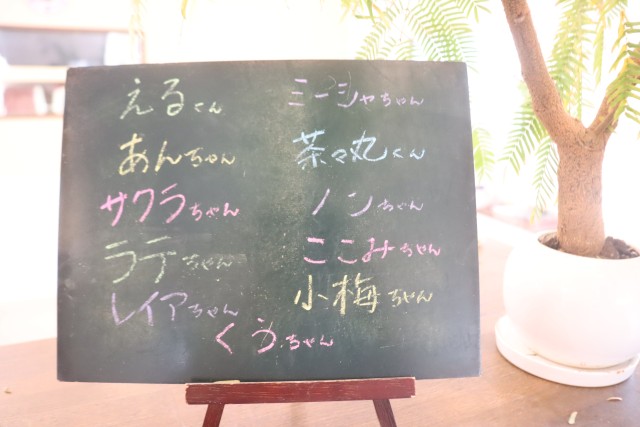 えるくん
あんちゃん
サクラちゃん
ラテちゃん
レイアちゃん
ミーシャちゃん
茶々丸くん
ノンちゃん
ここみちゃん
小梅ちゃん
くうちゃん